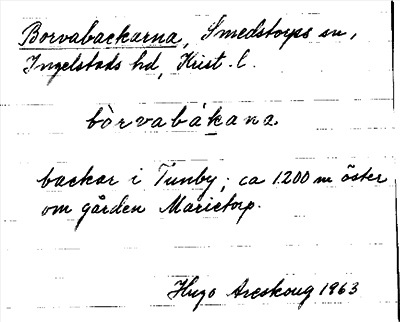 Borvabackarna, Smedstorps sn,
Ingelstads hd, Krist. l.
bòrvabákana.
backar i Tunby; ca 1200 m öster
om gården Marietorp.
Hugo Areskoug 1963